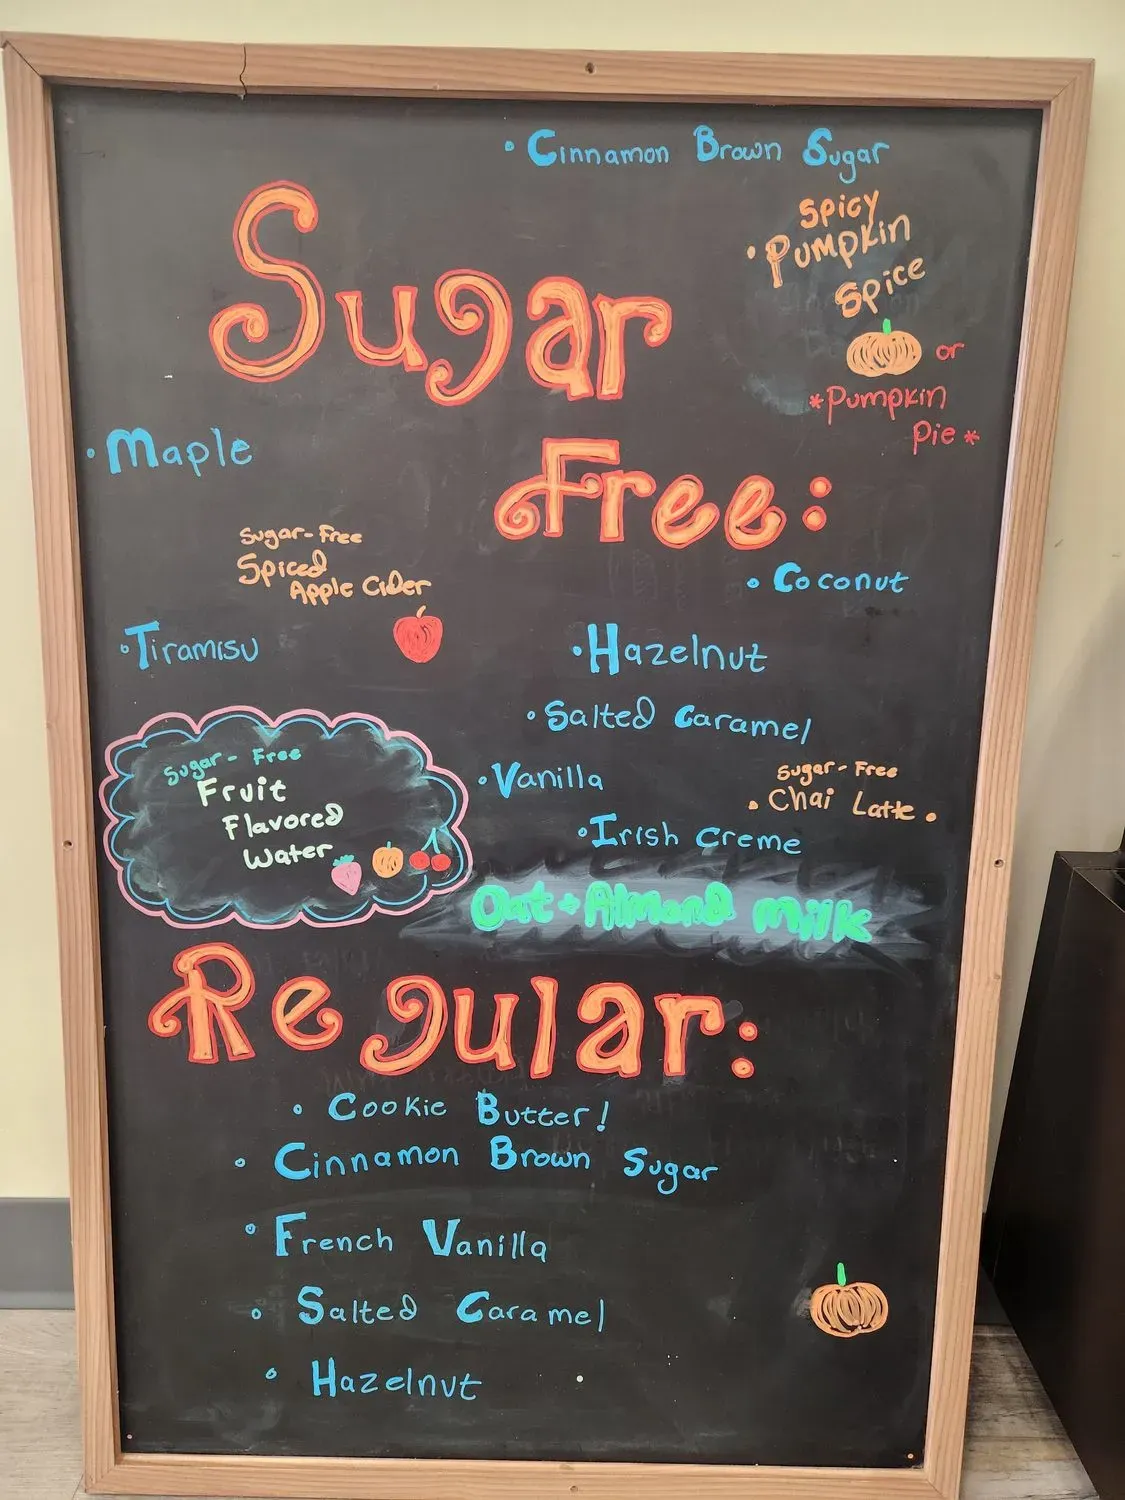 • Cinnamon Brown Sugar
Spicy
• Pumpkin
Spice
or
*Pumpkin
Pie*
Sugar
Free:
• Maple
Sugar-Free
Spiced
Apple Cider
• Coconut
• Tiramisu
• Hazelnut
• Salted Caramel
• Vanilla
Sugar-Free
• Chai Latte •
• Irish Creme
Sugar-Free
Fruit
Flavored
Water
Oat + Almond Milk
Regular:
• Cookie Butter!
• Cinnamon Brown Sugar
• French Vanilla
• Salted Caramel
• Hazelnut